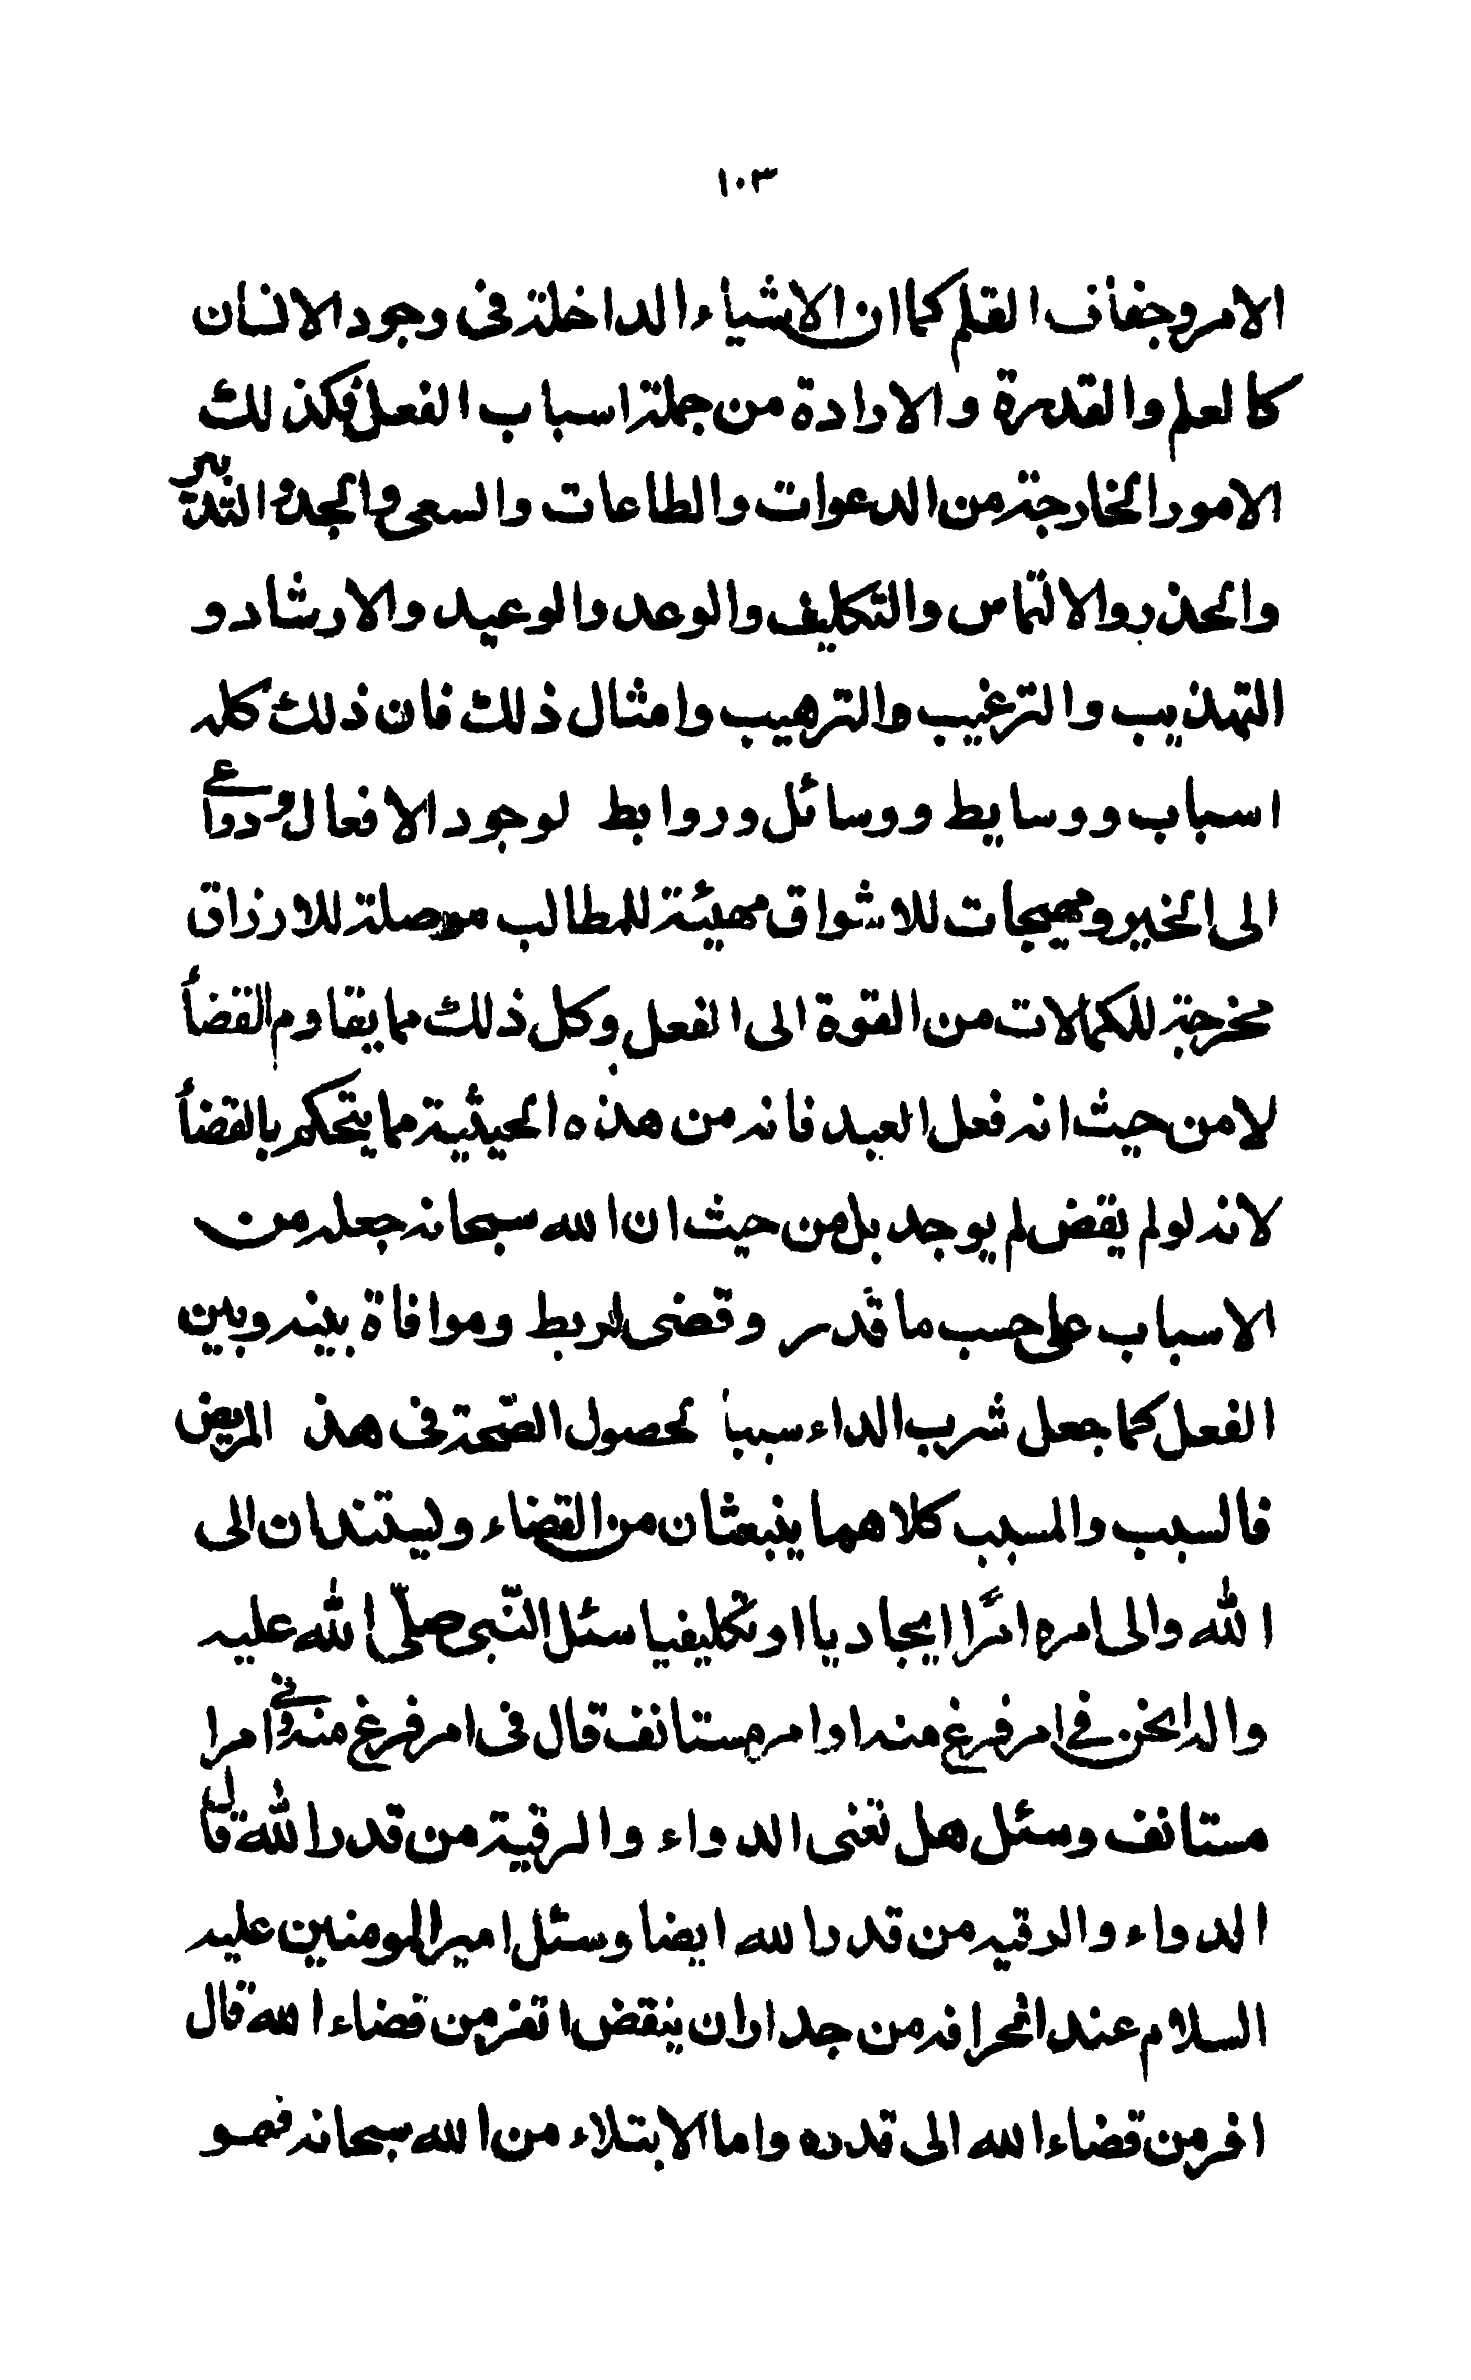 ١٠٣
الامر وجفاف القلم كما ان الاشياء الداخلة فى وجود الانسان
كالعلم والقدرة والارادة من جملة اسباب الفعل فكذلك
الامور الخارجة من الدعوات والطاعات والسعى والجد والتدبير
والحذر والالتماس والتكليف والوعد والوعيد والارشاد و
التهذيب والترغيب والترهيب وامثال ذلك فان ذلك كله
اسباب ووسايط ووسائل وروابط لوجود الافعال ودواعى
الى الخير ومهيجات للاشواق مهيئة للمطالب موصلة للارزاق
مخرجة للكمالات من القوة الى الفعل وكل ذلك مما يقاوم القضأ
لا من حيث انه فعل العبد فانه من هذه الحيثية مما يتحكم بالقضأ
لانه لو لم يقض لم يوجد بل من حيث ان الله سبحانه جعله من
الاسباب على حسب ما قدر وقضى لربط وموافاة بينه وبين
الفعل كما جعل شرب الداء سببا لحصول الصّحة فى هذ المريض
فالسبب والمسبب كلاهما ينبعثان من القضاء وليستندان الى
الله والى امره امرًا ايجاديا او تكليفيا سئل النّبى صلّى الله عليه
واله انحن فى امر فرغ منه اوامر مستانف قال فى امر فرغ منه وفى امرا
مستانف وسئل هل تغنى الدواء والرقية من قدر الله قال
الدواء والرقيه من قدر الله ايضا وسئل امير المومنين عليه
السلام عند انحرافه من جدار ان ينقض اتفر من قضاء الله قال
افر من قضاء الله الى قدره واما الابتلاء من الله سبحانه فهو